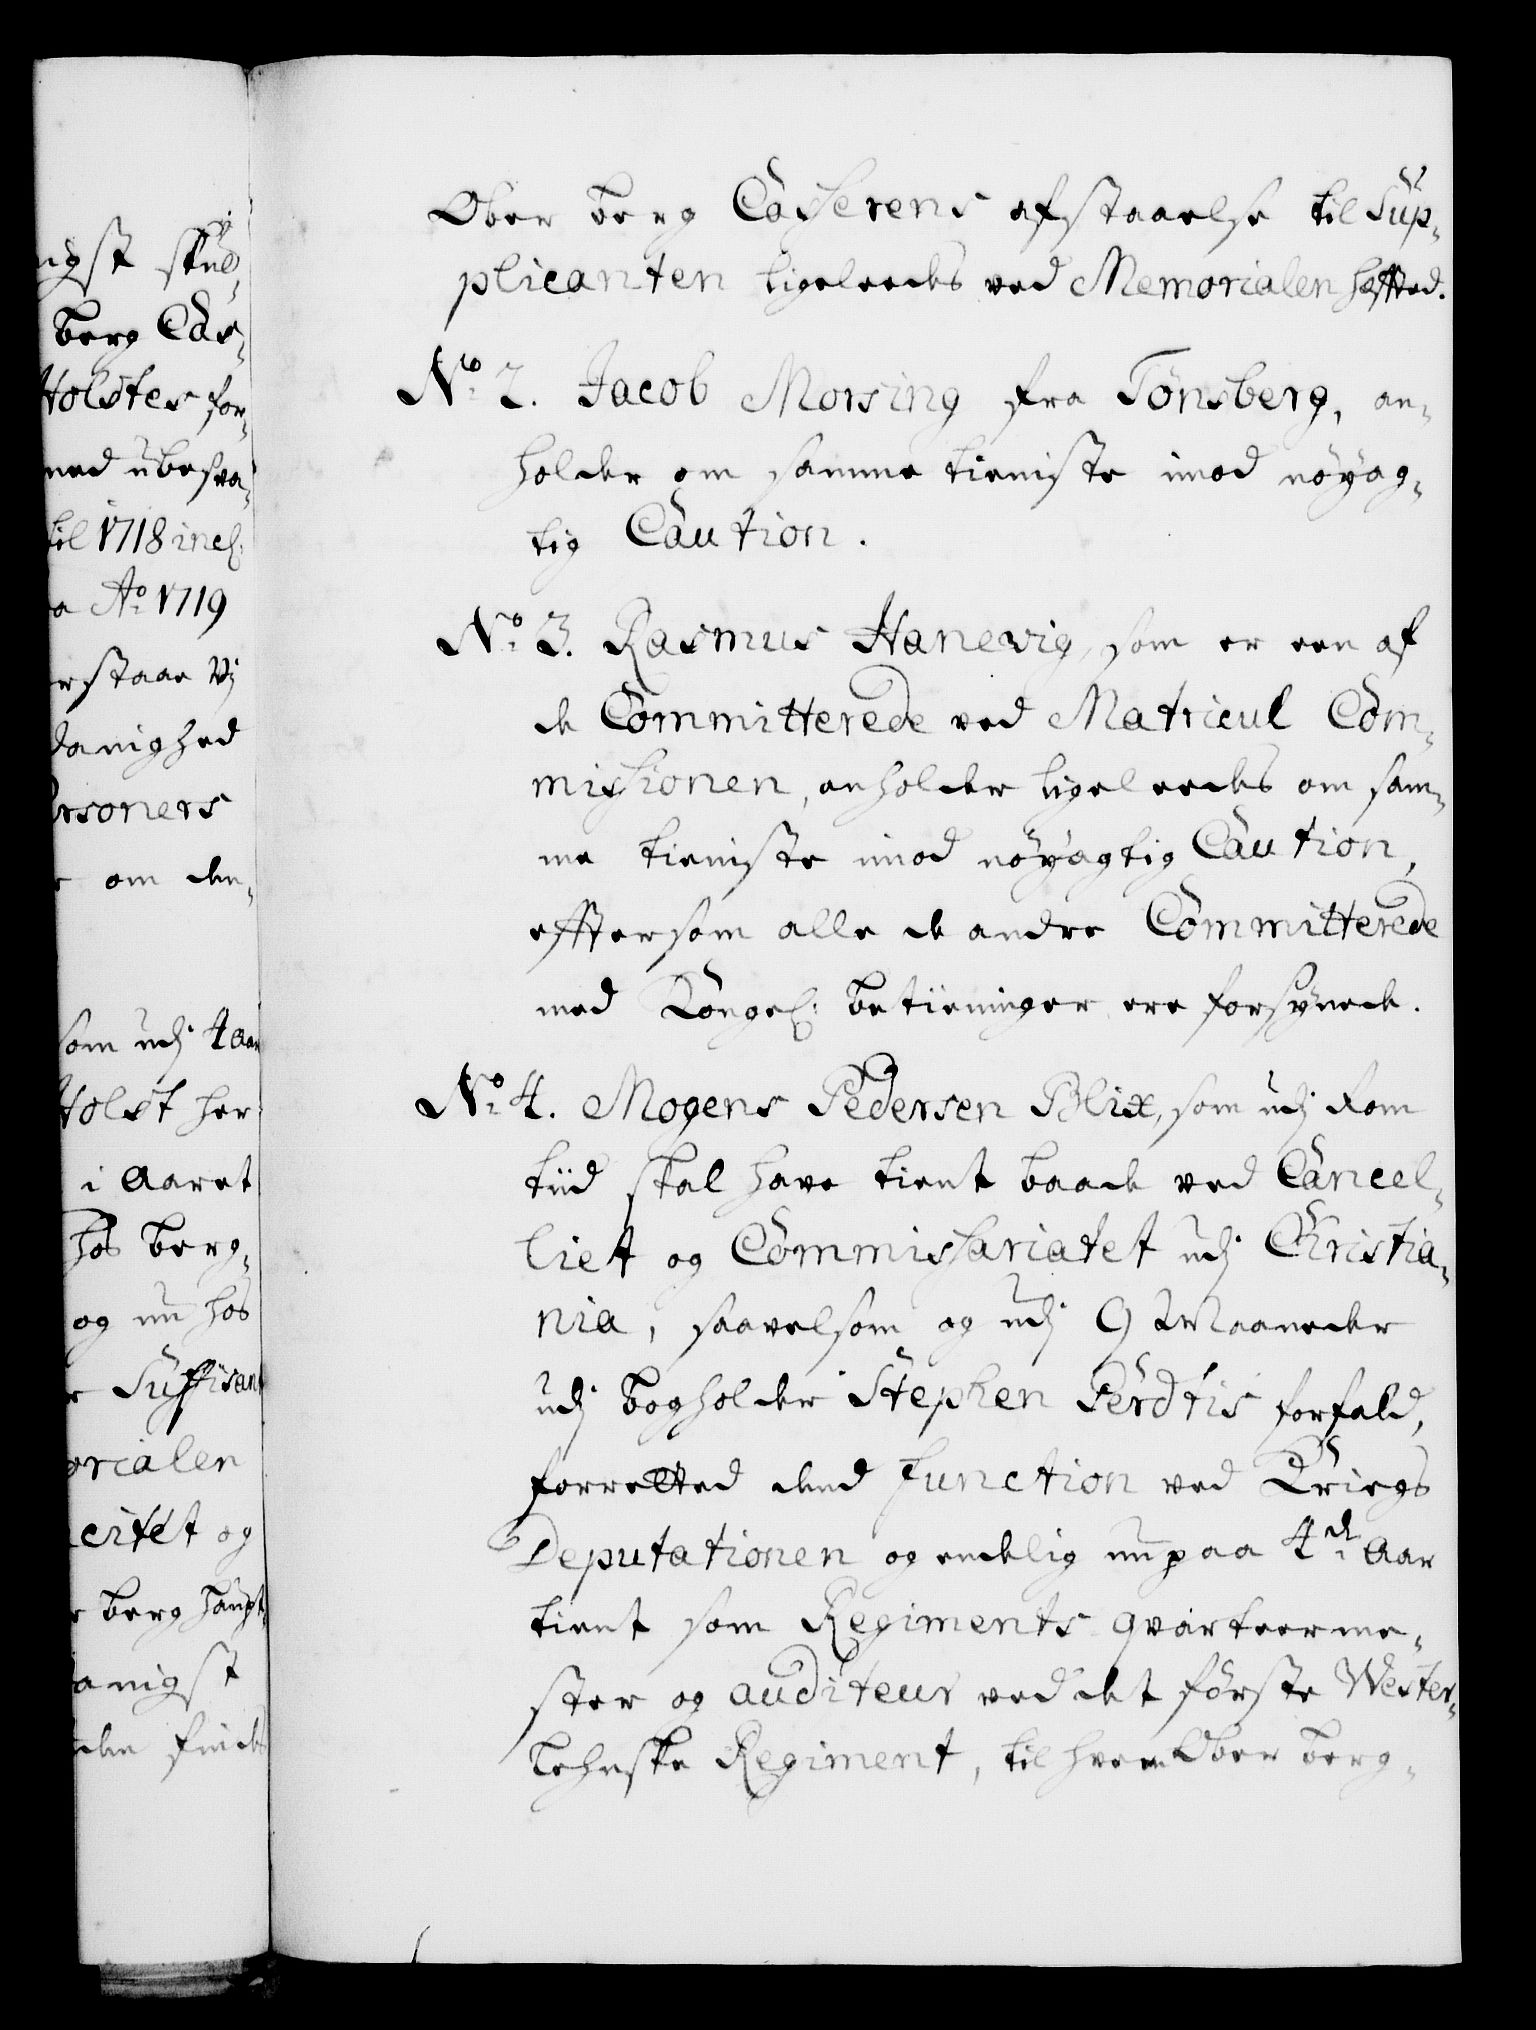 ngst skul-
berg Cas-
Holstes for-
med ubesva-
til 1718 incl:
a Ao 1719
rstaae vj
danighed
ersoners
om den-
som udj 4 Aar
Holst her
i Aaret
hos berg-
og nu hos
r Suffisant
orialen
citet og
r berg haupt-
anigst
den finds
Ober berg Casserens afstaaelse til Sup-
plicanten ligeleedes ved Memorialen hæfted.
No 2. Jacob Morsing fra Tønsberg, an-
holder om samme tieniste imod nøyag-
tig Caution.
No 3. Rasmus Hanevig, som er een af
de Committerede ved Matricul Com-
missionen, anholder ligeleedes om sam-
me tieniste imod nøyagtig Caution,
efftersom alle de andre Committerede
med Kongel: betieninger ere forsynede.
No 4. Mogens Pedersen Blix, som udj Rom
tiid skal have tient baade ved Cancel-
liet og Commissariatet udj Christia-
nia, saavelsom og udj 9 Maaneder
udj bogholder Stephen Perdtis forfald,
forretted dend Function ved Kriegs
Deputationen og endelig nu paa 4de Aar
tient som Regiments qvarteerme-
ster og auditeur ved det første Wester-
lehnske Regiment, til hvem Ober berg-